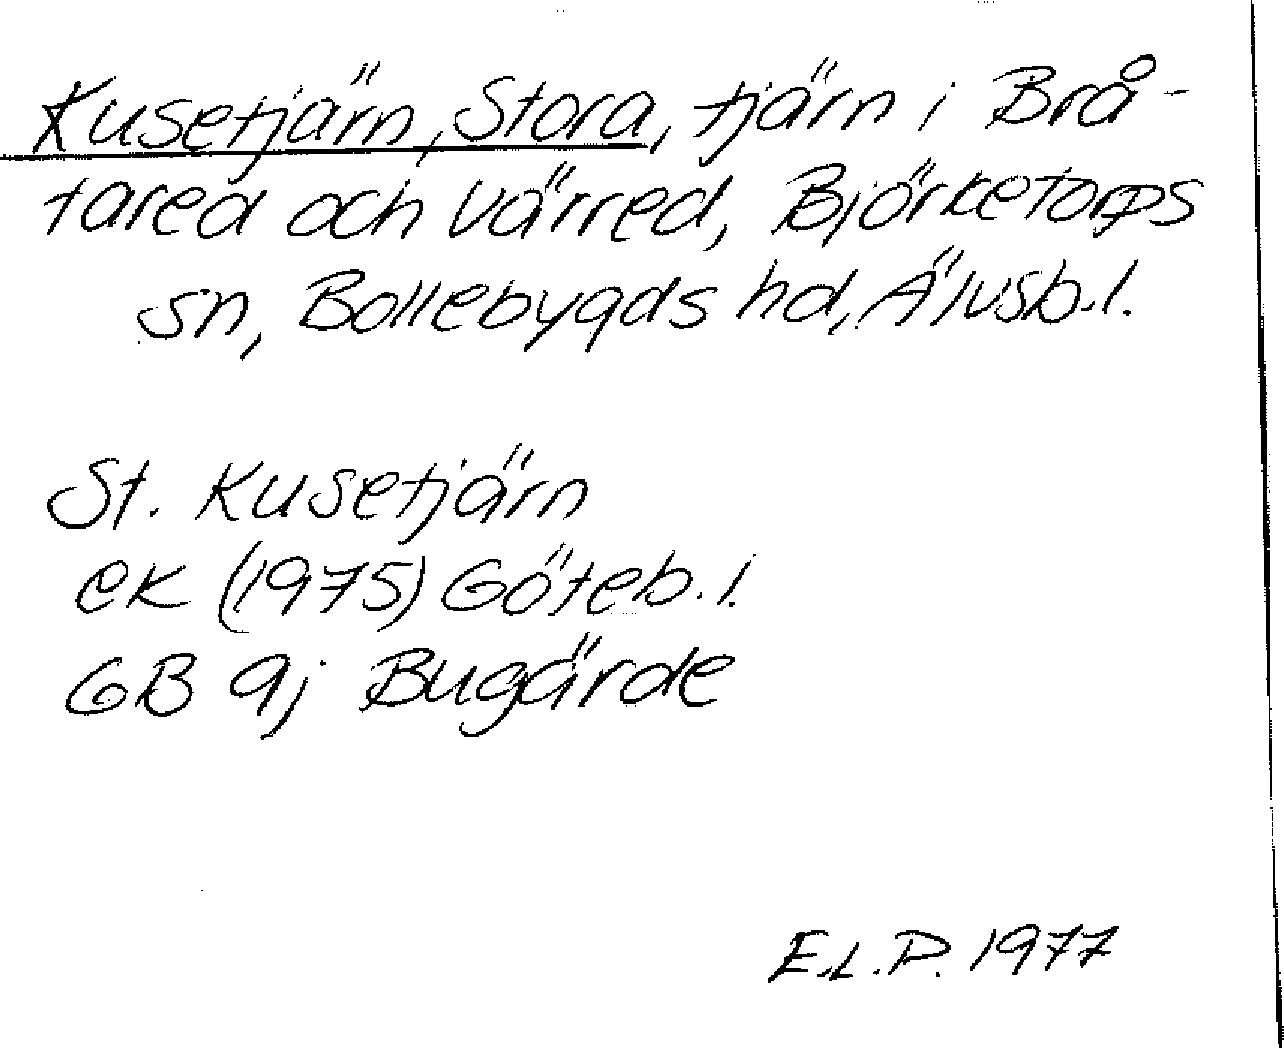 Kusetjärn, Stora, tjärn i Brå-
tared och Värred, Björketorps
sn, Bollebygds hd, Älvsb.l.
St. Kusetjärn
ek (1975) Göteb.l.
GB 9j Bugärde
E.L.P. 1977